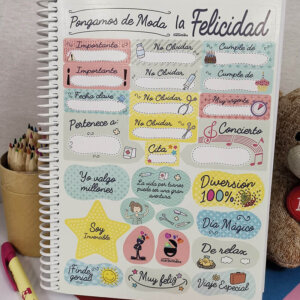 Pongamos de Moda la Felicidad
Importante
No Olvidar
Cumple de
Importante
No Olvidar
Cumple de
Fecha clave
No Olvidar
Muy urgente
Pertenece a:
No Olvidar
Concierto
Cita
Yo valgo
millones
La vida por barcos
puede ser una gran
aventura
Diversión
100%
Soy
Invencible
Día Mágico
De relax
Finde
genial
Muy feliz
Viaje Especial